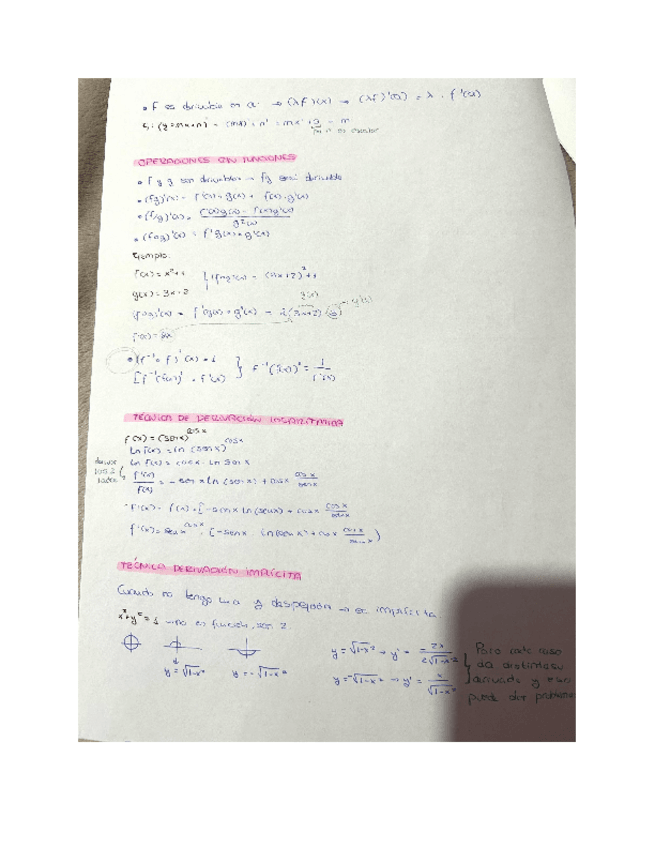 • f es derivable en a → (λf)(x) → (λf)'(a) = λ · f'(a)
OPERACIONES CON FUNCIONES
• f y g son derivables → fg será derivable
• (fg)'(x) = f'(x)·g(x) + f(x)·g'(x)
• (f/g)'(x) = f'(x)g(x) - f(x)g'(x) / g²(x)
• (fog)'(x) = f'g(x)·g'(x)
Ejemplo:
f(x) = x²+1
(fog)(x) = (3x+2)²+1
g(x) = 3x+2
g(x)
(fog)'(x) = f'(g(x))·g'(x) = 2(3x+2)·3
g'(x)
f'(x) = 2x
• (f⁻¹ o f)'(x) = 1
[f⁻¹(f(x))]' · f'(x)
f⁻¹(f(x))' = 1 / f'(x)
TÉCNICA DE DERIVACIÓN LOGARÍTMICA
f(x) = (sen x)^cos x
ln f(x) = ln (sen x)^cos x
ln f(x) = cos x · ln sen x
f'(x) / f(x) = - sen x ln (sen x) + cos x cos x / sen x
f'(x) = f(x) · [- sen x ln (sen x) + cos x cos x / sen x
f'(x) = sen x^cos x · [- sen x · ln (sen x) + cos x cos x / sen x)
TÉCNICA DERIVACIÓN IMPLÍCITA
Cuando no tengo la y despejada → es implícita.
x²+y² = 1 → no es función, son 2.
y = √1-x² → y' = - 2x / 2√1-x²
y = √1-x²
y = - √1-x²
y = -√1-x² → y' = x / √1-x²
Para cada caso
da distinta su
derivada y eso
puede dar problemas